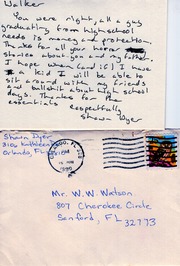 Walker
You were right, all a guy
graduating from high school
needs is money and protection.
Thanks for all your horror
stories about you and my father.
I hope when (and if) I have
a kid I will be able to
sit around with my friends
and bullshit about high school
days. Thanks for the
essentials
respectfully
Shawn Dyer
Shawn Dyer
3106 Kathleen
Orlando, Fl
ORLANDO, FL
PM
1990
Mr. W. W. Watson
807 Cherokee Circle
Sanford, FL
32773